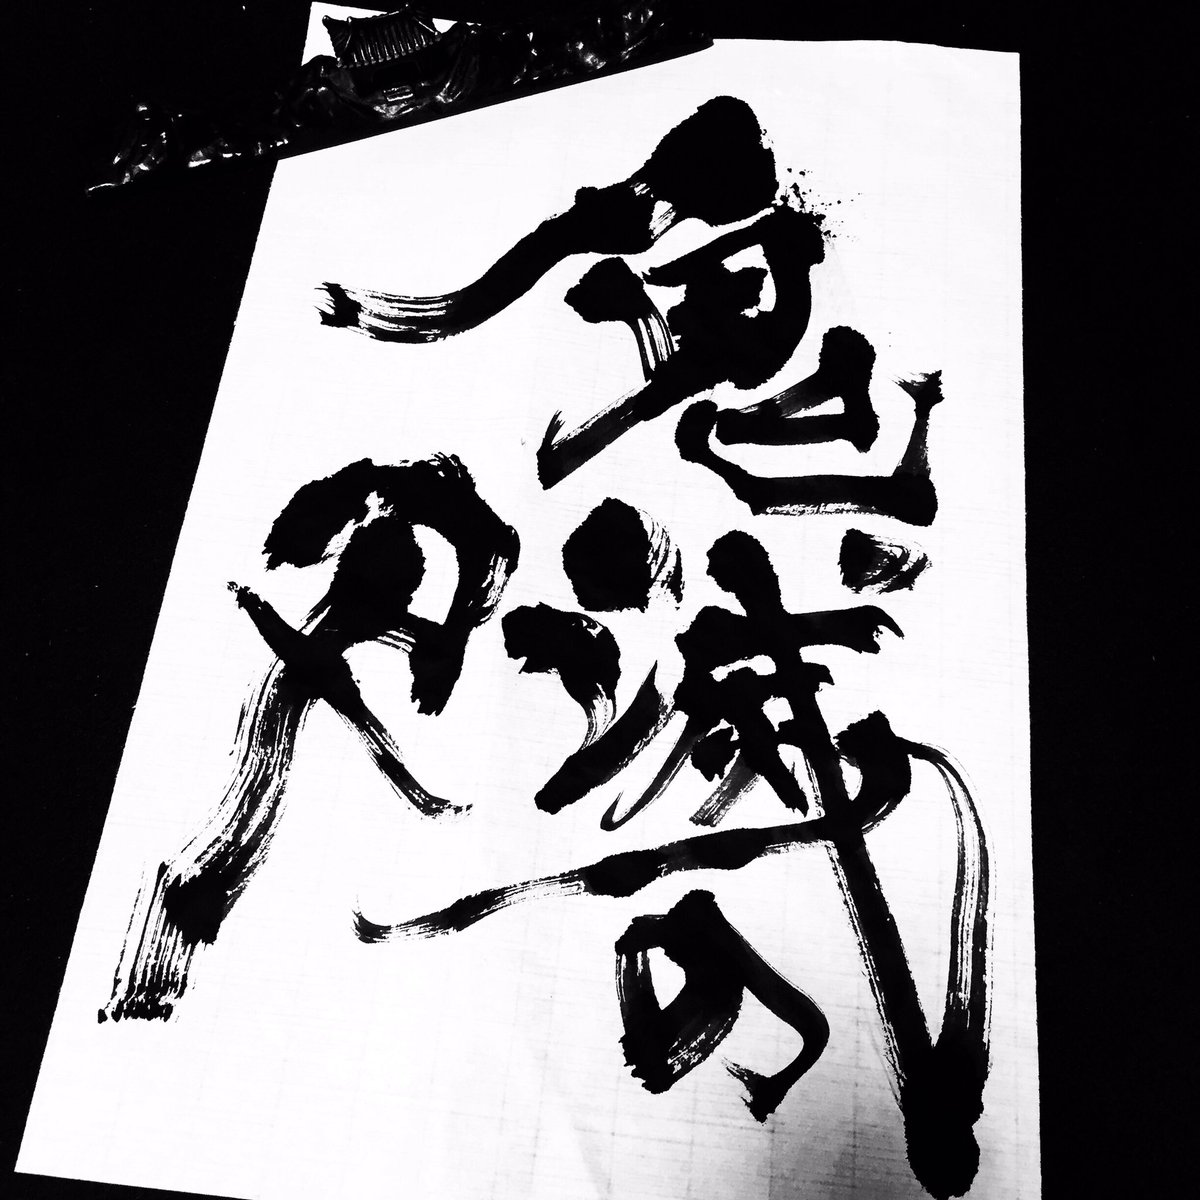 鬼滅の
刃